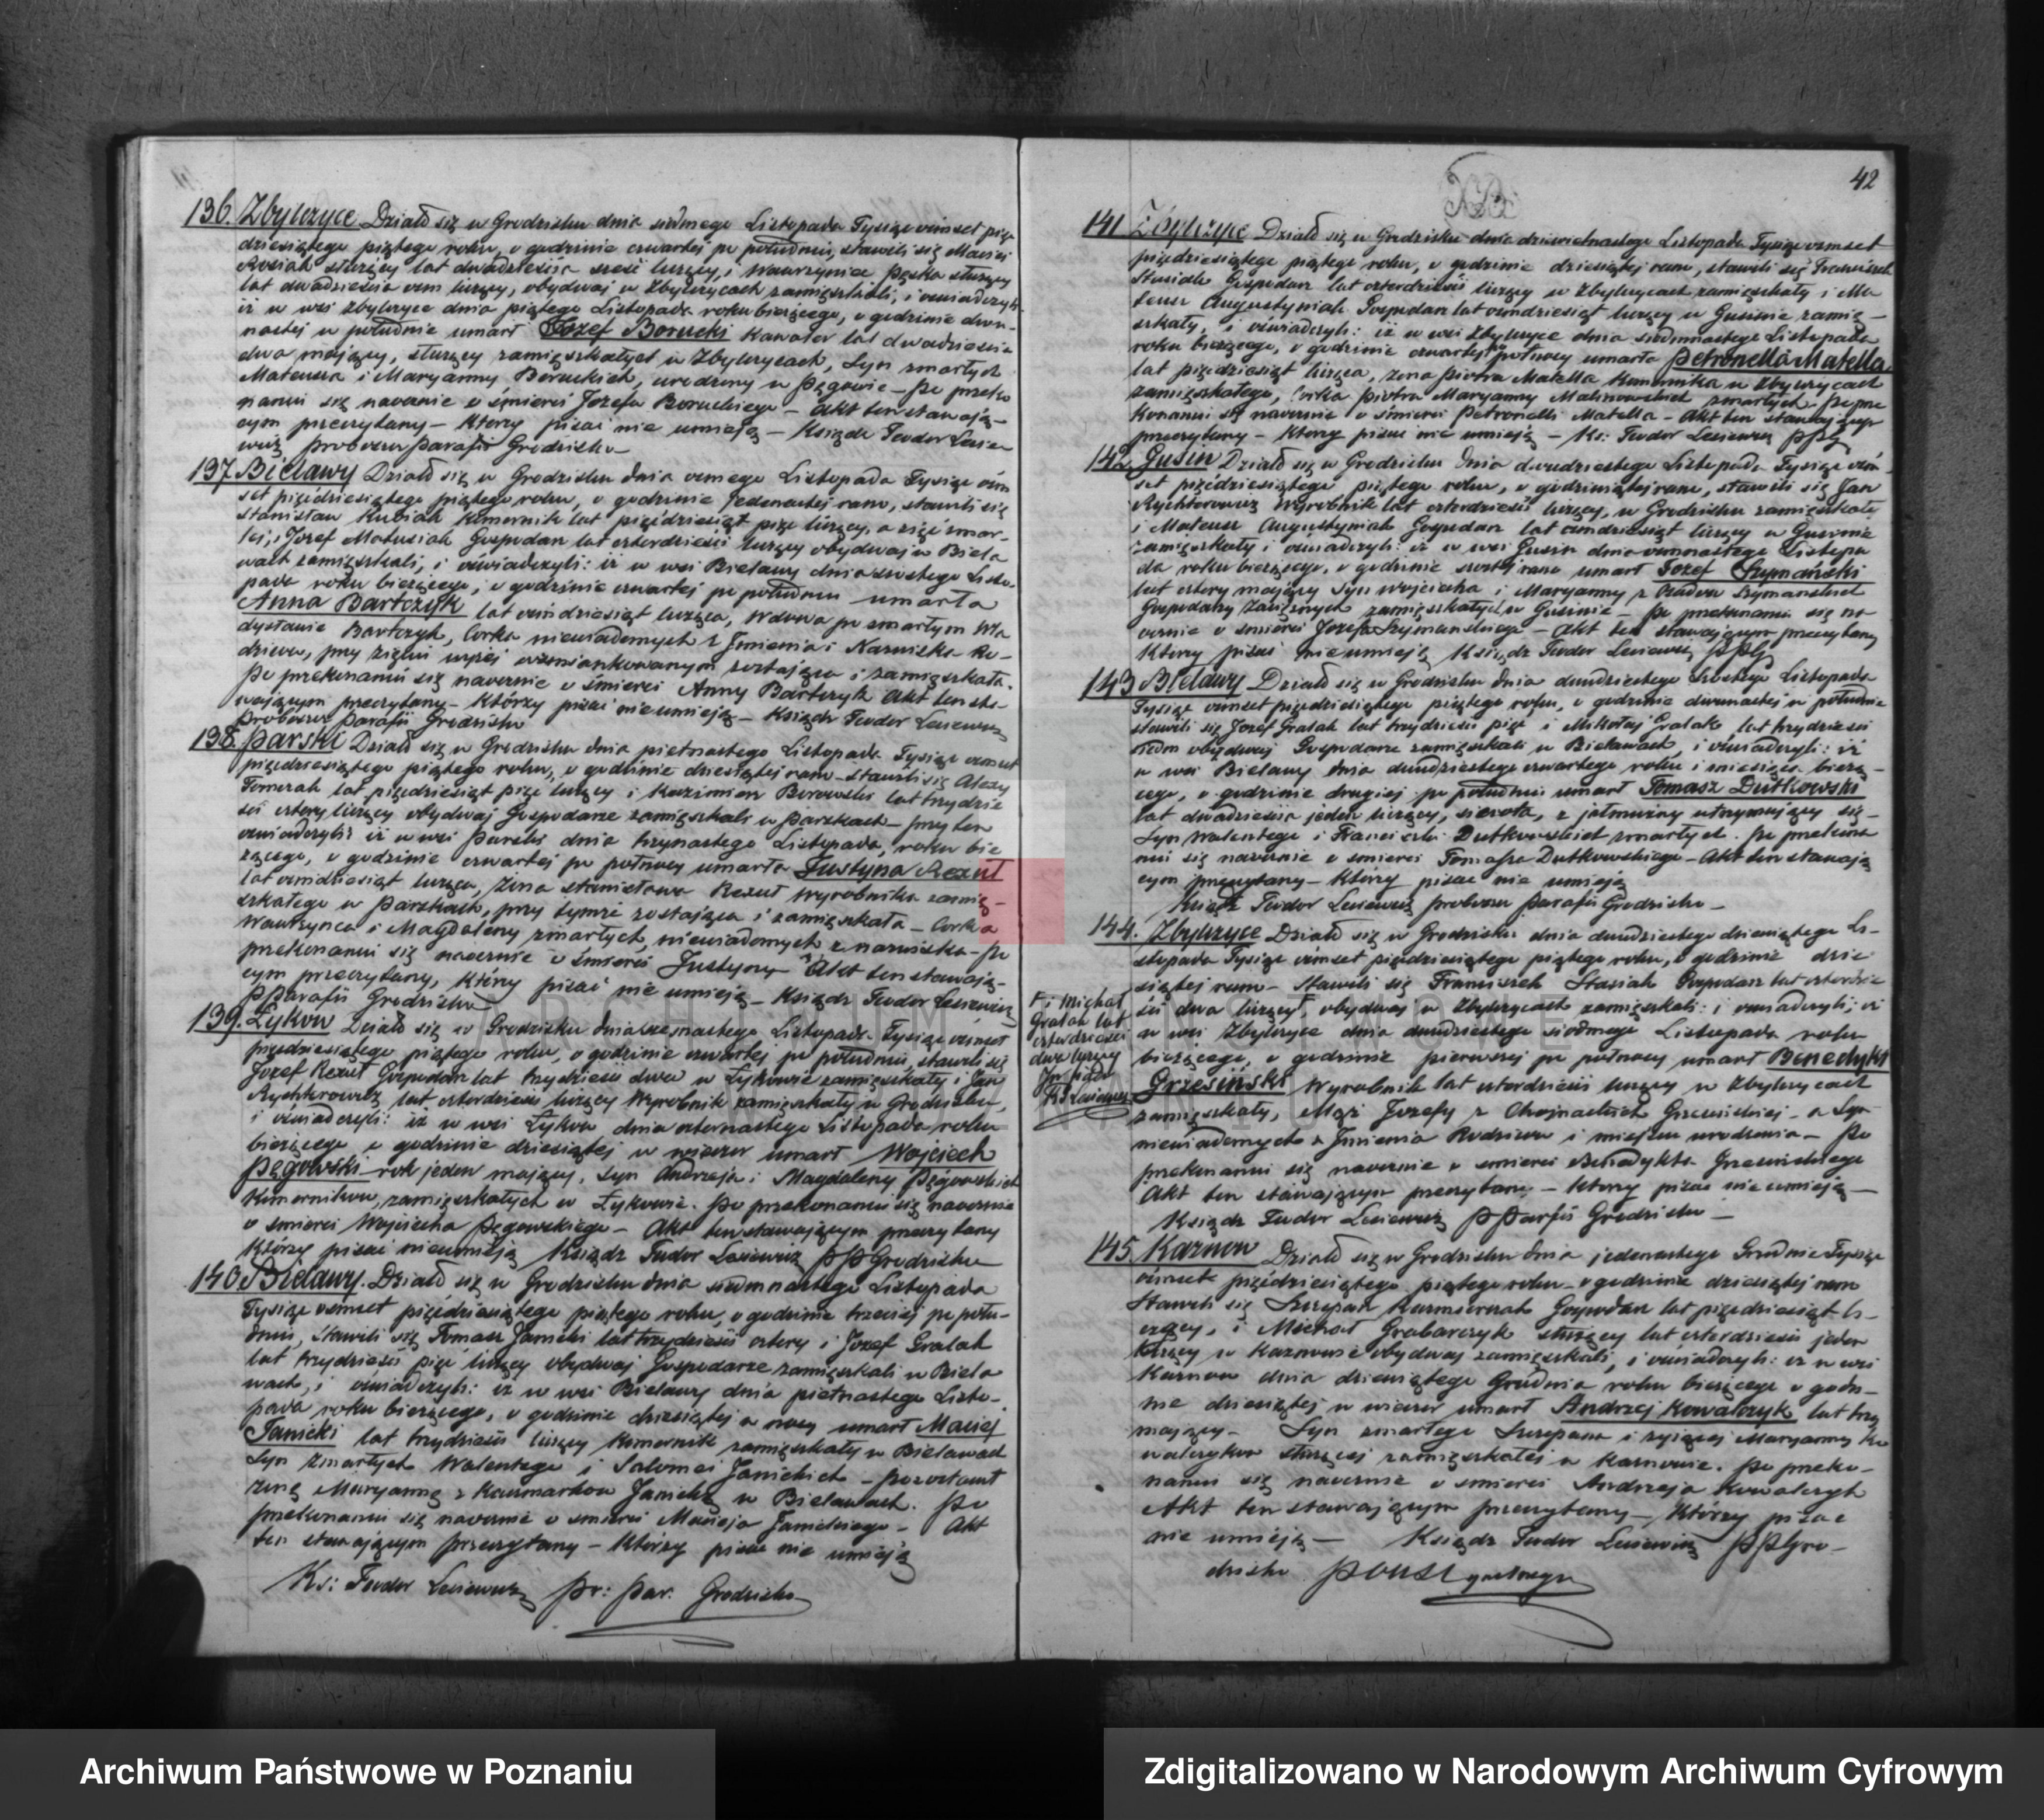 136. Zbylczyce Działo się w Grodzisku dnia siódmego Listopada Tysiąc ośmset pięć
dziesiątego piątego roku, o godzinie czwartej po południu, stawili się Maciej
Rosiak służący lat dwadzieścia sześć liczący, i Wawrzyniec Pęska służący
lat dwadzieścia osm liczący, obydwaj w Zbylczycach zamięszkali, i oświadczyli
iż w wsi Zbylczyce dnia piątego Listopada roku bieżącego, o godzinie dwu-
nastej w południe umarł Jozef Borucki Kawaler lat dwadzieścia
dwa mający, służący zamięszkałych w Zbylczycach, Syn zmarłych
Mateusza i Maryanny Boruckich, urodzony w Pęgowie – Po przeko
naniu się naocznie o śmierci Jozefa Boruckiego – Akt ten stawają-
cym przeczytany – Którzy pisać nie umieją – Ksiądz Teodor Lesie
wicz proboszcz Parafii Grodzisko
137. Bielawy Działo się w Grodzisku dnia osmego Listopada Tysiąc ośm
set pięćdziesiątego piątego roku, o godzinie jedenastej rano, stawili się
Stanisław Kubiak Komornik lat pięćdziesiąt pięć liczący, a zięć zmar-
łej, i Jozef Matusiak Gospodarz lat czterdzieści liczący obydwaj w Biela
wach zamięszkali, i oświadczyli: iż w wsi Bielawy dnia szóstego Listo-
pada roku bieżącego, o godzinie czwartej po południu umarła
Anna Bartczyk lat ośmdziesiąt licząca, Wdowa po zmarłym Wła
dysławie Bartczyk, Corka niewiadomych z Jmienia i Nazwiska Ro-
dziców, przy zięciu wyżej wzmiankowanym zostająca i zamięszkała.
Po przekonaniu się naocznie o śmierci Anny Bartczyk Akt ten sta-
wającym przeczytany – Którzy pisać nie umieją – Ksiądz Teodor Lesiewicz
proboszcz Parafii Grodzisko
138. Parski Działo się w Grodzisku dnia piętnastego Listopada Tysiąc ośmset
pięćdziesiątego piątego roku, o godzinie dziesiątej rano – stawili się Alexy
Tomczak lat pięćdziesiąt pięć liczący i Kazimierz Borowski lat trzydzie
ści cztery liczący obydwaj Gospodarze zamięszkali w Parskach – przy ten
oświadczyli: iż w wsi Parski dnia trzynastego Listopada, roku bie
żącego, o godzinie czwartej po północy umarła Justyna Rezuł
lat ośmdziesiąt licząca, Żona Stanisława Rezuł wyrobnika zamię-
szkałego w Parskach, przy tymże zostająca i zamięszkała – Corka
Wawrzyńca i Magdaleny zmarłych, niewiadomych z nazwiska – po
przekonaniu się naocznie o śmierci Justyny – Akt ten stawają-
cym przeczytany, Którzy pisać nie umieją – Ksiądz Teodor Lesiewicz
P Parafii Grodzisko
139. Łykow Działo się w Grodzisku dnia szesnastego Listopada Tysiąc ośmset
pięćdziesiątego piątego roku, o godzinie czwartej po południu, stawili się
Jozef Rezuł Gospodarz lat trzydzieści dwa w Łykowie zamięszkały i Jan
Rychterowicz lat czterdzieści liczący Wyrobnik zamięszkały w Grodzisku,
i oświadczyli: iż w wsi Łyków dnia czternastego Listopada roku
bieżącego o godzinie dziesiątej w wieczór umarł Wojciech
Pęgowski – rok jeden mający, Syn Andrzeja i Magdaleny Pęgowskich
Komorników, zamięszkałych w Łykowie. Po przekonaniu się naocznie
o śmierci Wojciecha Pęgowskiego – Akt ten stawającym przeczytany
Którzy pisać nieumieją Ksiądz Teodor Lesiewicz PP Grodzisko
140 Bielawy. Działo się w Grodzisku dnia siedmnastego Listopada
Tysiąc ośmset pięćdziesiątego piątego roku, o godzinie trzeciej po połu-
dniu, Stawili się Tomasz Janicki lat trzydzieści cztery i Jozef Gralak
lat trzydzieści pięć liczący obydwaj Gospodarze zamięszkali w Biela
wach, i oświadczyli: iż w wsi Bielawy dnia piętnastego Listo-
pada roku bieżącego, o godzinie dziesiątej w nocy umarł Maciej
Janicki lat trzydzieści liczący Komornik zamięszkały w Bielawach
Syn Zmarłych Walentego i Salomei Janickich – pozostawił
Żonę Maryannę z Kaczmarków Janicką w Bielawach. Po
przekonaniu się naocznie o śmierci Macieja Janickiego – Akt
ten stawającym przeczytany – Którzy pisać nie umieją
Ks: Teodor Lesiewicz Pr: Par. Grodzisko
42
141 Zbylczyce Działo się w Grodzisku dnia dziewiętnastego Listopada Tysiąc ośmset
pięćdziesiątego piątego roku, o godzinie dziesiątej rano, stawili się Franciszek
Stasiak Gospodarz lat czterdzieści liczący w Zbylczycach zamięszkały i Ma
teusz Augustyniak Gospodarz lat ośmdziesiąt liczący w Gusinie zamię-
szkały, i oświadczyli: iż w wsi Zbylczyce dnia siedmnastego Listopada
roku bieżącego, o godzinie czwartej po północy umarła Petronella Matella
lat pięćdziesiąt licząca, żona Piotra Matella Komornika w Zbylczycach
zamięszkałego, Corka Piotra Maryanny Malinowskich zmarłych. Po prze
konaniu się naocznie o śmierci Petronelli Matella – Akt ten stawającym
przeczytany – Którzy pisać nie umieją – Ks: Teodor Lesiewicz PPG
142. Gusin Działo się w Grodzisku dnia dwudziestego Listopada Tysiąc ośm
set pięćdziesiątego piątego roku, o godziniątej rano, stawili się Jan
Rychterowicz Wyrobnik lat czterdzieści liczący, w Grodzisku zamięszkały
i Mateusz Augustyniak Gospodarz lat ośmdziesiąt liczący w Gusinie
zamięszkały i oświadczyli: iż w wsi Gusin dnia osmnastego Listopa
da roku bieżącego, o godzinie szóstej rano umarł Jozef Szymański
lat cztery mający Syn Wojciecha i Maryanny z Szymańskich
Gospodarzy zamięszkałych w Gusinie Po przekonaniu się na
ocznie o śmierci Jozefa Szymańskiego – Akt ten stawającym przeczytany
Którzy pisać nieumieją Ksiądz Teodor Lesiewicz PPG
143 Bielawy Działo się w Grodzisku dnia dwudziestego szóstego Listopada
Tysiąc ośmset pięćdziesiątego piątego roku, o godzinie dwunastej w południe
stawili się Jozef Gralak lat trzydzieści pięć i Mikołaj Gralak lat trzydzieści
siedm obydwaj Gospodarze zamięszkali w Bielawach, i oświadczyli: iż
w wsi Bielawy dnia dwudziestego czwartego roku i miesiąca bieżą-
cego, o godzinie drugiej po południu umarł Tomasz Dutkowski
lat dwadzieścia jeden liczący, sierota, z jałmużny utrzymujący się –
Syn Walentego i Franciszki Dutkowskich zmarłych. po przekona
niu się naocznie o śmierci Tomasza Dutkowskiego – Akt ten stawają
cym przeczytany – Którzy pisać nie umieją
Ksiądz Teodor Lesiewicz proboszcz Parafii Grodzisko –
144. Zbylczyce Działo się w Grodzisku dnia dwudziestego dziewiątego Li-
stopada Tysiąc ośmset pięćdziesiątego piątego roku, o godzinie dzie
siątej rano – Stawili się Franciszek Stasiak Gospodarz lat czterdzie
ści dwa liczący F, obydwaj w Zbylczycach zamięszkali: i oświadczyli; iż
w wsi Zbylczyce dnia dwudziestego siódmego Listopada roku
bieżącego, o godzinie pierwszej po północy umarł Benedykt
Grzesiński Wyrobnik lat czterdzieści liczący w Zbylczycach
zamięszkały, Mąż Jozefy z Chojnackich Grzesińskiej – a Syn
niewiadomych z Jmienia Rodziców i miejsca urodzenia – Po
przekonaniu się naocznie o śmierci Benedykta Grzesińskiego
Akt ten stawającym przeczytany – którzy pisać nieumieją –
Ksiądz Teodor Lesiewicz P Parafii Grodzisko –
F i Michał
Gralak lat
czterdzieści
dwa liczący
Ks Lesiewicz
145. Karnow Działo się w Grodzisku dnia jedenastego Grudnia Tysiąc
ośmset pięćdziesiątego piątego roku – o godzinie dziesiątej rano
Stawili się Szczepan Kazmierczak Gospodarz lat pięćdziesiąt li-
czący, i Michał Grabarczyk służący lat czterdzieści jeden
liczący w Karnowie obydwaj zamięszkali, i oświadczyli: iż w wsi
Karnow dnia dziewiątego Grudnia roku bieżącego o godzi-
nie dziesiątej w wieczór umarł Andrzej Kowalczyk lat trzy
mający – Syn zmarłego Szczepana i żyjącej Maryanny Ko
walczyków służącej zamięszkałej w Karnowie. Po przeko-
naniu się naocznie o śmierci Andrzeja Kowalczyk
Akt ten stawającym przeczytany – Którzy pisać
nie umieją – Ksiądz Teodor Lesiewicz PPGro-
dzisko
ARCHIWUM PAŃSTWOWE
W POZNANIU
Archiwum Państwowe w Poznaniu
Zdigitalizowano w Narodowym Archiwum Cyfrowym